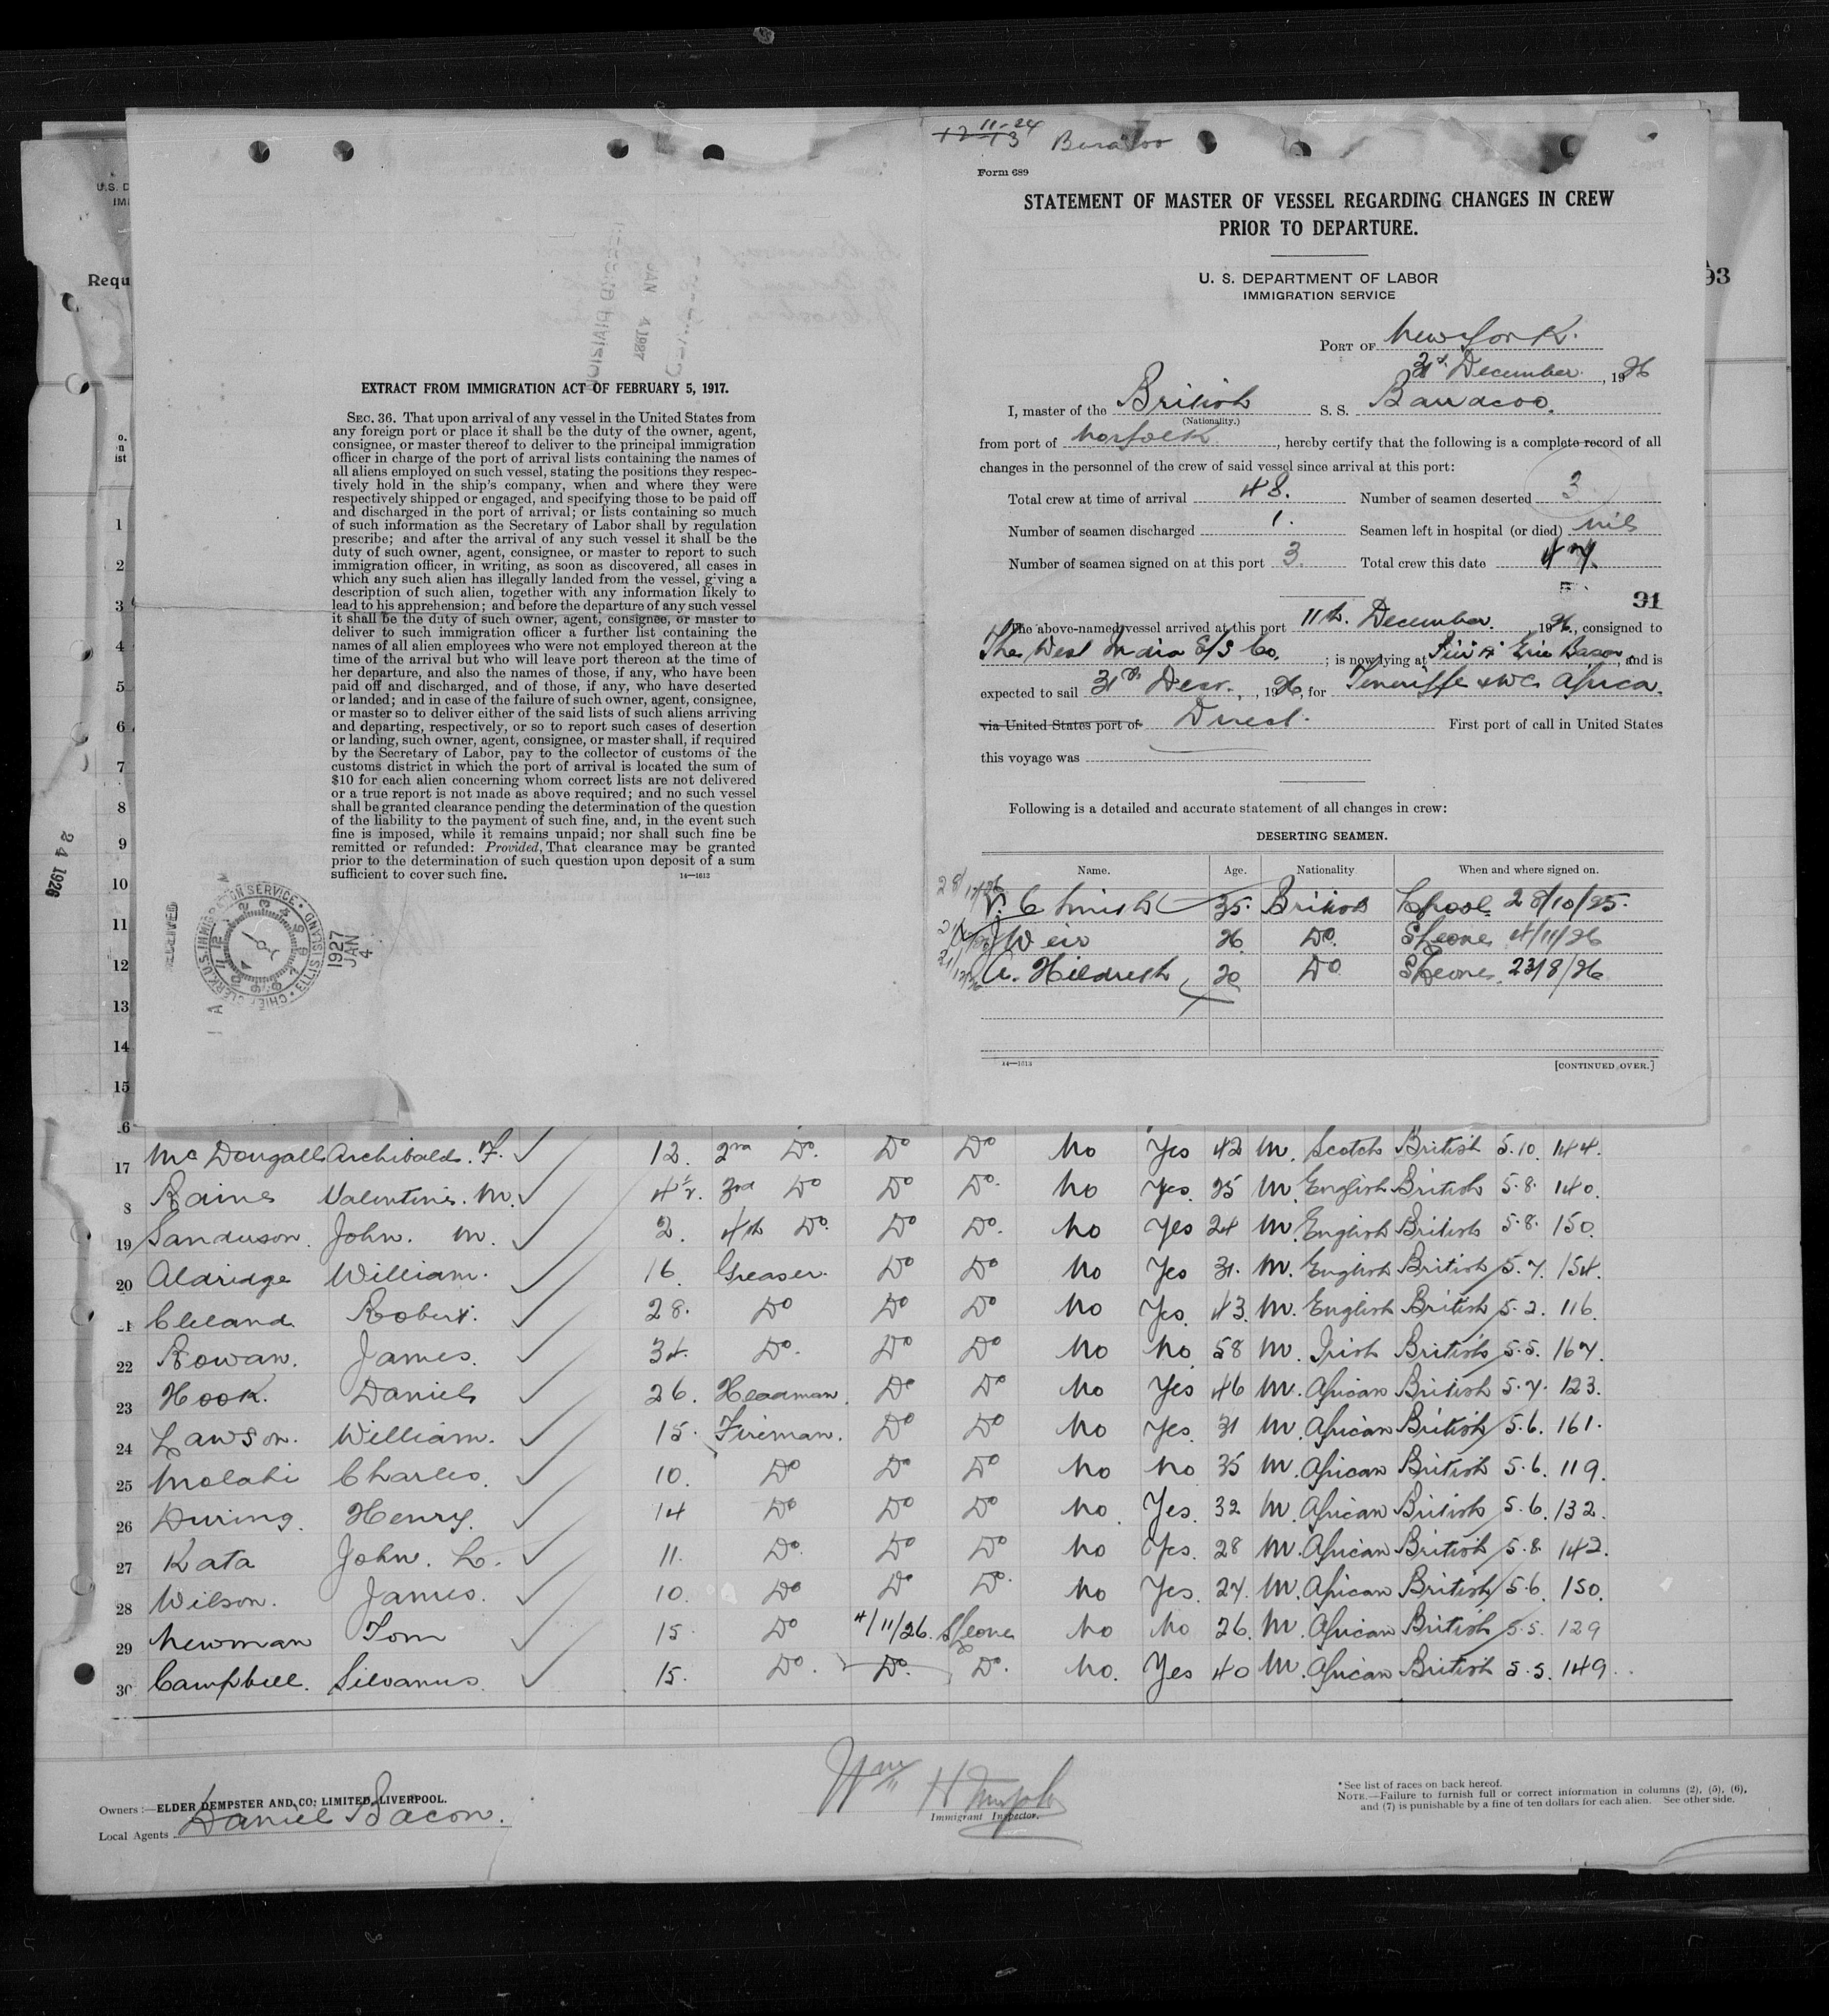 Form 689
STATEMENT OF MASTER OF VESSEL REGARDING CHANGES IN CREW
PRIOR TO DEPARTURE.
U. S. DEPARTMENT OF LABOR
IMMIGRATION SERVICE
PORT OF New York.
31st December, 1926
I, master of the British S. S. Barracoo.
(Nationality.)
from port of Norfolk, hereby certify that the following is a complete record of all
changes in the personnel of the crew of said vessel since arrival at this port:
Total crew at time of arrival 48. Number of seamen deserted 3
Number of seamen discharged 1. Seamen left in hospital (or died) nil
Number of seamen signed on at this port 3. Total crew this date 47.
31
The above-named vessel arrived at this port 11th. December. 1926, consigned to
The West India S/S Co. ; is now lying at Erie Basin, and is
expected to sail 31st Decr., 1926, for Teneriffe & W.C. Africa.
via United States port of Direct. First port of call in United States
this voyage was
Following is a detailed and accurate statement of all changes in crew:
DESERTING SEAMEN.
Name. Age. Nationality When and where signed on.
Smith 35. British L'pool. 28/10/25.
J Weir 26 Do. S'Leone 4/11/26
A. Hildreth 20 Do S'Leone. 23/8/26
14—1613
[CONTINUED OVER.]
EXTRACT FROM IMMIGRATION ACT OF FEBRUARY 5, 1917.
SEC. 36. That upon arrival of any vessel in the United States from
any foreign port or place it shall be the duty of the owner, agent,
consignee, or master thereof to deliver to the principal immigration
officer in charge of the port of arrival lists containing the names of
all aliens employed on such vessel, stating the positions they respec-
tively hold in the ship's company, when and where they were
respectively shipped or engaged, and specifying those to be paid off
and discharged in the port of arrival; or lists containing so much
of such information as the Secretary of Labor shall by regulation
prescribe; and after the arrival of any such vessel it shall be the
duty of such owner, agent, consignee, or master to report to such
immigration officer, in writing, as soon as discovered, all cases in
which any such alien has illegally landed from the vessel, giving a
description of such alien, together with any information likely to
lead to his apprehension; and before the departure of any such vessel
it shall be the duty of such owner, agent, consignee, or master to
deliver to such immigration officer a further list containing the
names of all alien employees who were not employed thereon at the
time of the arrival but who will leave port thereon at the time of
her departure, and also the names of those, if any, who have been
paid off and discharged, and of those, if any, who have deserted
or landed; and in case of the failure of such owner, agent, consignee,
or master so to deliver either of the said lists of such aliens arriving
and departing, respectively, or so to report such cases of desertion
or landing, such owner, agent, consignee, or master shall, if required
by the Secretary of Labor, pay to the collector of customs of the
customs district in which the port of arrival is located the sum of
$10 for each alien concerning whom correct lists are not delivered
or a true report is not made as above required; and no such vessel
shall be granted clearance pending the determination of the question
of the liability to the payment of such fine, and, in the event such
fine is imposed, while it remains unpaid; nor shall such fine be
remitted or refunded: Provided, That clearance may be granted
prior to the determination of such question upon deposit of a sum
sufficient to cover such fine.
14—1613
RECEIVED
CHIEF CLERK U.S. IMMIGRATION SERVICE ELLIS ISLAND
1927
JAN
4
24 1926
Requ
93
1
2
3
4
5
6
7
8
9
10
11
12
13
14
15
17 McDougall Archibald. F. 12. 2nd Do. Do Do No Yes 42 M. Scotch British 5.10. 144.
8 Raine Valentine. M. 3rd Do Do Do. No Yes. 25 M. English British 5.8. 140.
19 Sanderson. John. M. 2. 4th Do. Do Do. No Yes 24 M. English British 5.8. 150.
20 Aldridge William. 16. Greaser. Do Do No Yes 31. M. English British 5.7. 154.
Cleland Robert. 28. Do Do Do No Yes. 43. M. English British 5.2. 116.
22 Rowan. James. 34. Do. Do Do No No. 58 M. Irish British 5.5. 167.
23 Hook. Daniel 26. Headman. Do Do No Yes 46 M. African British 5.7. 123.
24 Lawson. William. 15. Fireman. Do Do No Yes. 31 M. African British 5.6. 161.
25 Malabi Charles. 10. Do Do Do No No 35 M. African British 5.6. 119.
26 During. Henry. 14 Do Do Do No. Yes. 32 M. African British 5.6. 132.
27 Kata John. L. 11. Do. Do Do No Yes. 28 M. African British 5.8. 142.
28 Wilson. James. 10. Do Do Do. No Yes. 27. M. African British 5.6. 150.
29 Newman Tom 15. Do 4/11/26. S/Leone No No 26. M. African British 5.5. 129
30 Campbell. Silvanus. 15. Do. Do. Do. No. Yes 40 M. African British 5.5. 149.
Owners:—ELDER DEMPSTER AND CO; LIMITED, LIVERPOOL.
Local Agents Daniel Bacon.
Wm H Murphy
Immigrant Inspector.
*See list of races on back hereof.
NOTE.—Failure to furnish full or correct information in columns (2), (5), (6),
and (7) is punishable by a fine of ten dollars for each alien. See other side.